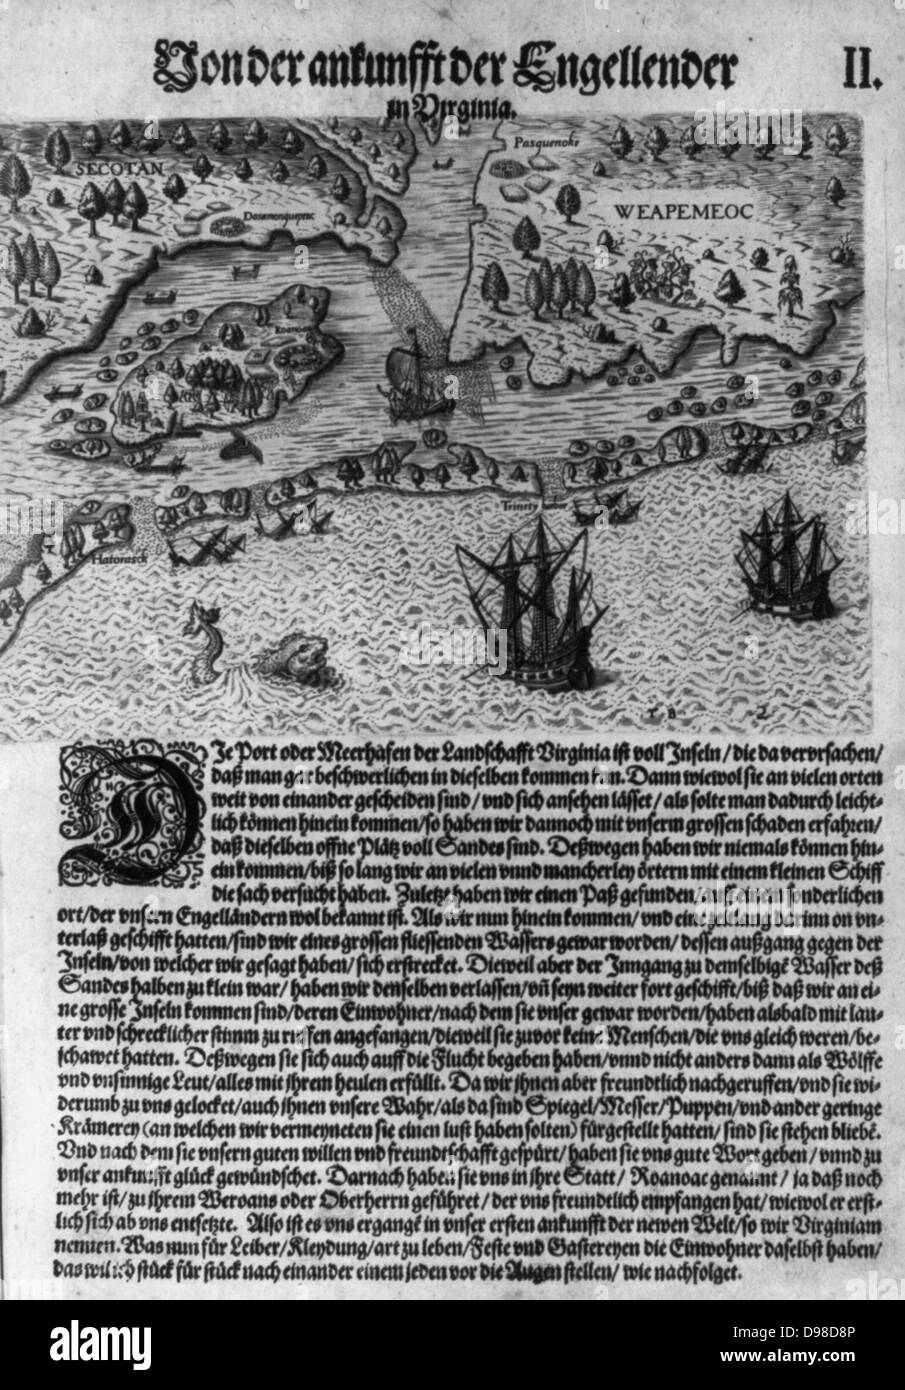 Von der ankunfft der Engellender II.
in Virginia.
Pasquenoke
SECOTAN
WEAPEMEOC
Dasemonquepeuc
Roanoac
Trinety harbor
Hatorasck
T B 2
DJe Port oder Meerhäfen der Landschafft Virginia ist voll Jnseln / die da vervrsachen /
daß man gar beschwerlichen in dieselben kommen kan. Dann wiewol sie an vielen orten
weit von einander gescheiden sind / vnd sich ansehen lässet / als solte man dadurch leicht-
lich können hinein kommen / so haben wir dannoch mit vnserm grossen schaden erfahren /
daß dieselben offne Plätz voll Sandes sind. Deßwegen haben wir niemals können hin-
ein kommen / biß so lang wir an vielen vnnd mancherley örtern mit einem kleinen Schiff
die sach versucht haben. Zuletzt haben wir einen Paß gefunden / auff einem sonderlichen
ort / der vnsern Engelländern wol bekannt ist. Als wir nun hinein kommen / vnd ein zeitlang darinn on vn-
terlaß geschifft hatten / sind wir eines grossen fliessenden Wassers gewar worden / dessen außgang gegen der
Jnseln / von welcher wir gesagt haben / sich erstrecket. Dieweil aber der Jnngang zu demselbigē Wasser deß
Sandes halben zu klein war / haben wir denselben verlassen / vñ seyn weiter fort geschifft / biß daß wir an ei-
ne grosse Jnseln kommen sind / deren Einwohner / nach dem sie vnser gewar worden / haben alsbald mit lau-
ter vnd schrecklicher stimm zu ruffen angefangen / dieweil sie zuvor keine Menschen / die vns gleich weren / be-
schawet hatten. Deßwegen sie sich auch auff die Flucht begeben haben / vnnd nicht anders dann als Wölffe
vnd vnsinnige Leut / alles mit jhrem heulen erfüllt. Da wir jhnen aber freundtlich nachgeruffen / vnd sie wi-
derumb zu vns gelocket / auch jhnen vnsere Wahr / als da sind Spiegel / Messer / Puppen / vnd ander geringe
Krämerey (an welchen wir vermeyneten sie einen lust haben solten) fürgestellt hatten / sind sie stehen bliebē.
Vnd nach dem sie vnsern guten willen vnd freundtschafft gespürt / haben sie vns gute Wort geben / vnnd zu
vnser ankunfft glück gewündschet. Darnach haben sie vns in jhre Statt / Roanoac genannt / ja daß noch
mehr ist / zu jhrem Weroans oder Oberherrn geführet / der vns freundtlich empfangen hat / wiewol er erst-
lich sich ab vns entsetzte. Also ist es vns ergangē in vnser ersten ankunfft der newen Welt / so wir Virginiam
nennen. Was nun für Leiber / Kleydung / art zu leben / Feste vnd Gastereyen die Einwohner daselbst haben /
das wil ich stück für stück nach einander einem jeden vor die Augen stellen / wie nachfolget.
alamy
Image ID: D98D8P
www.alamy.com